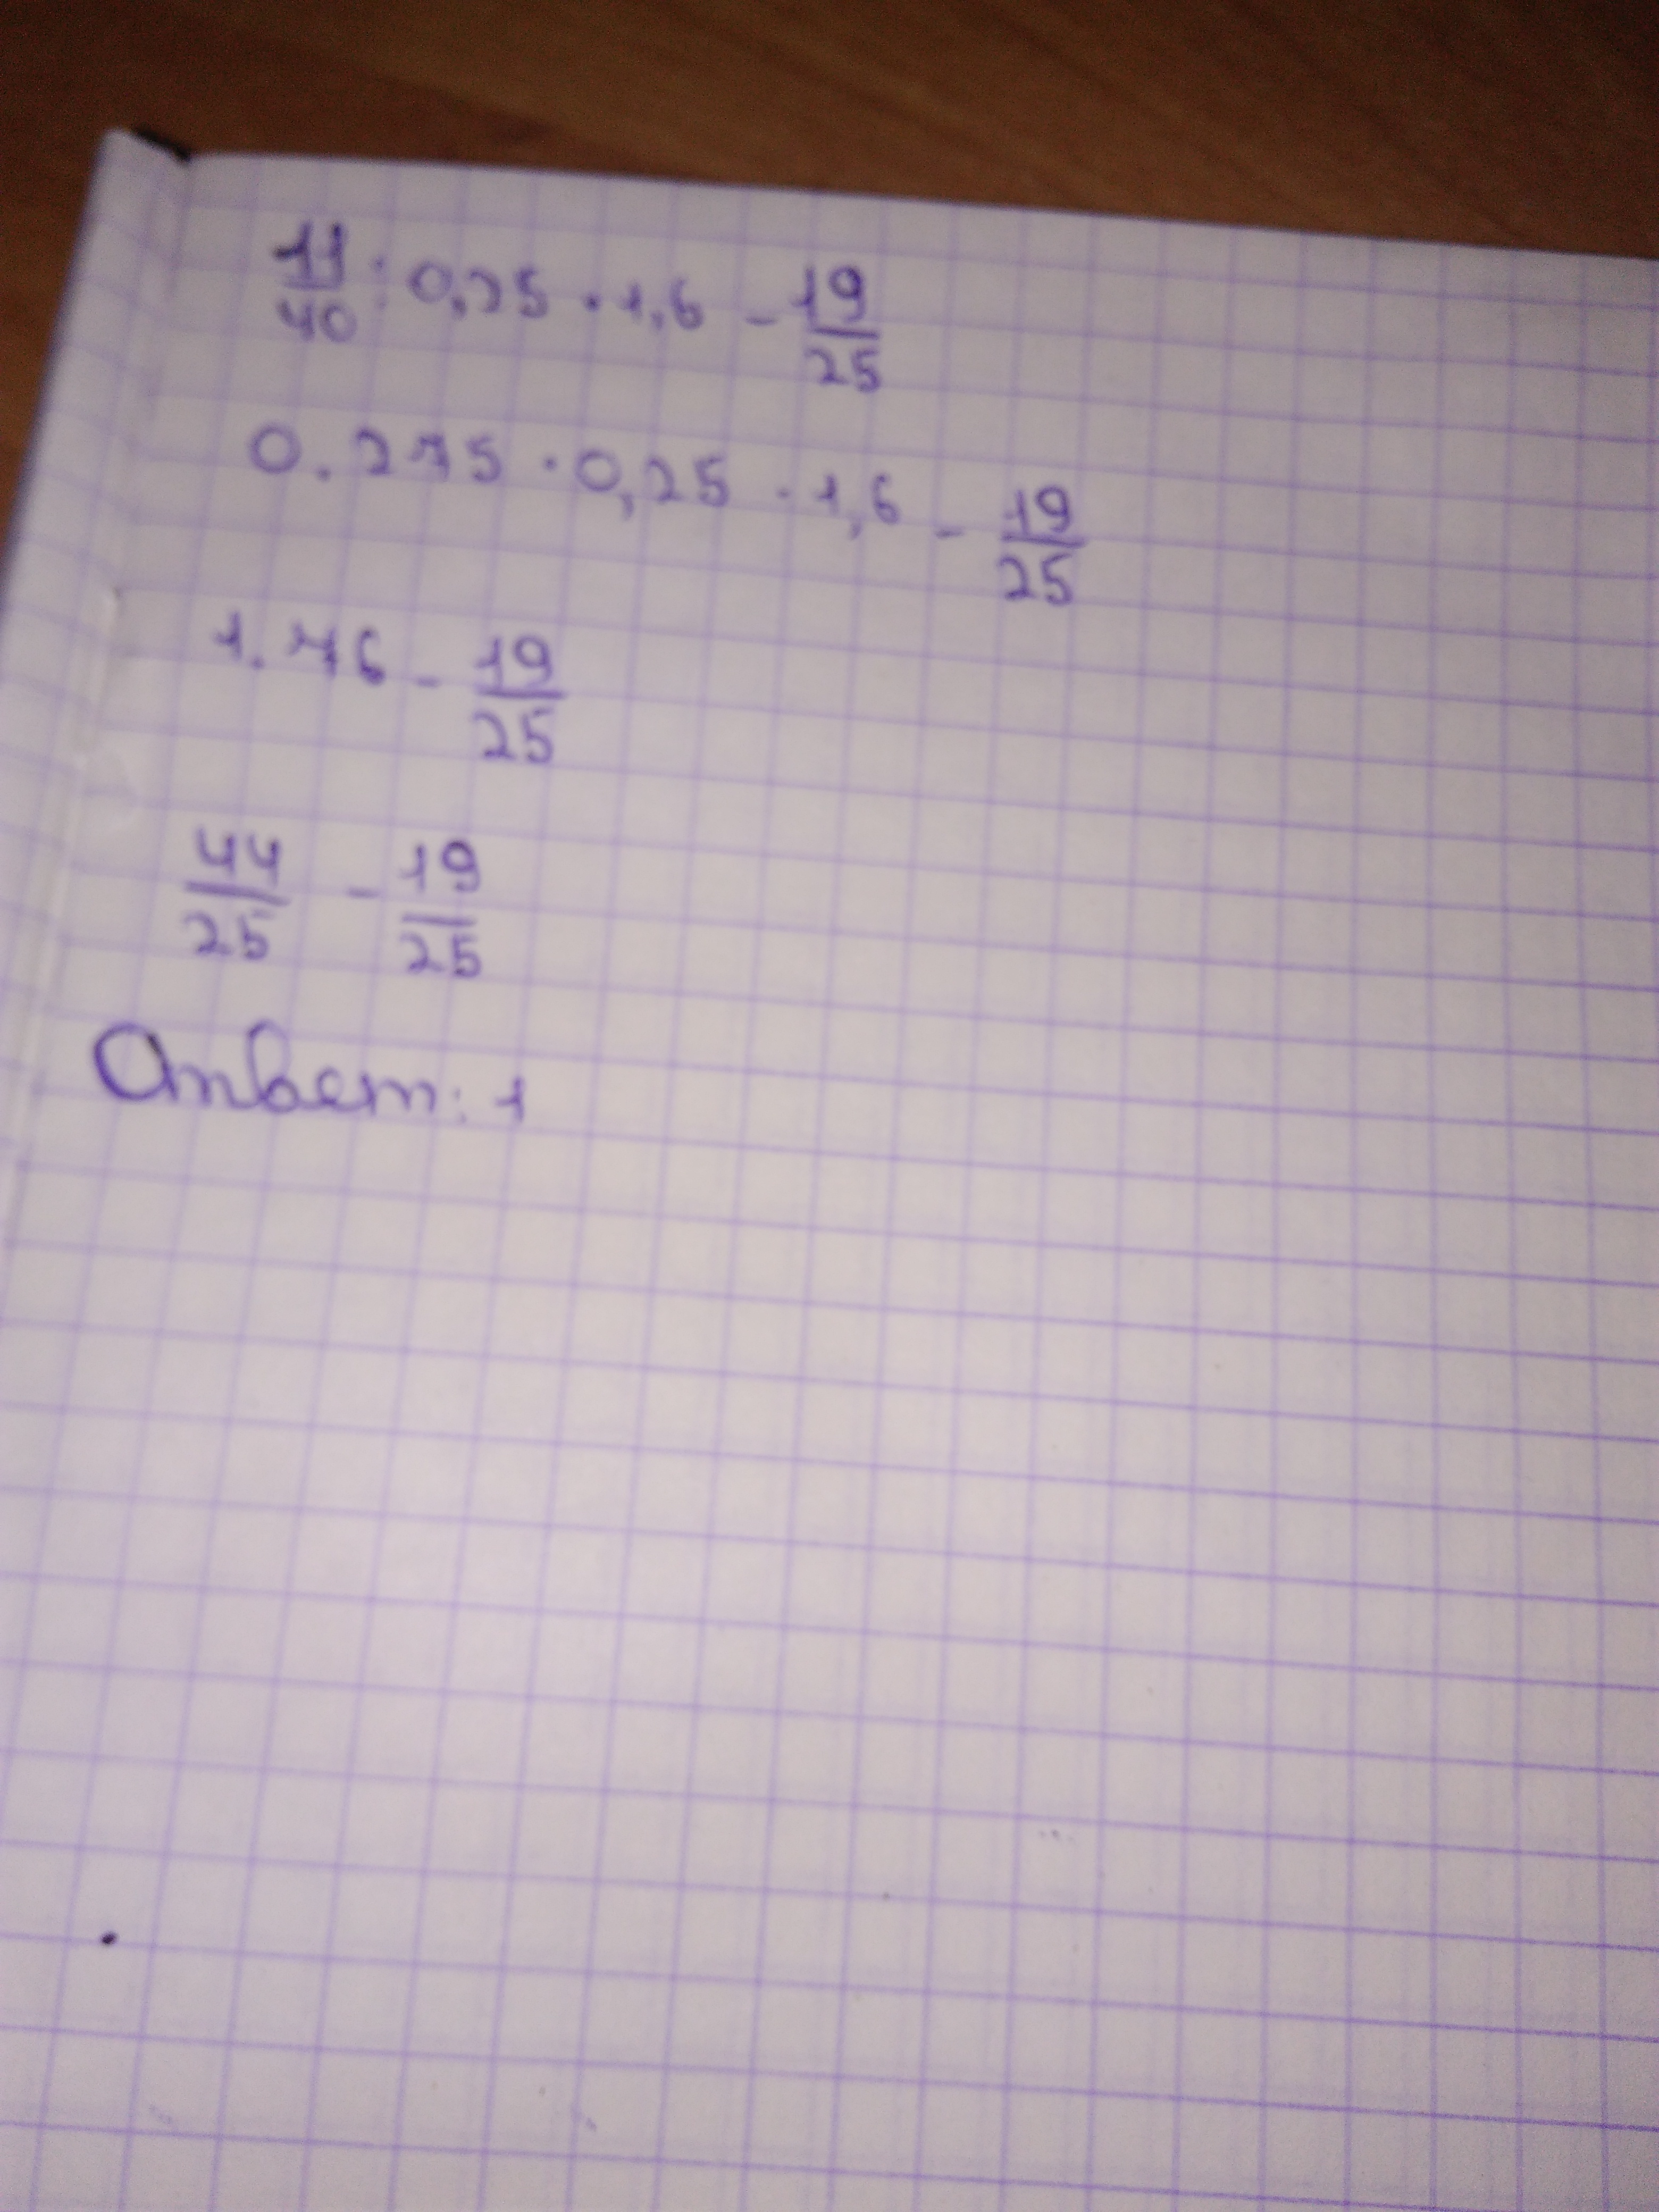 11/40 : 0,25 · 1,6 - 19/25
0.275 · 0,25 · 1,6 - 19/25
1.76 - 19/25
44/25 - 19/25
Ответ: 1